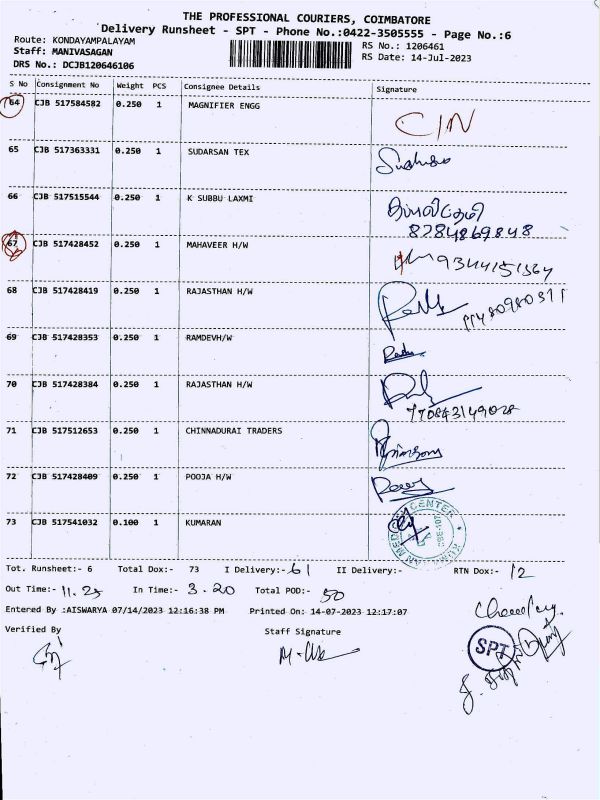 THE PROFESSIONAL COURIERS, COIMBATORE
Delivery Runsheet - SPT - Phone No.:0422-3505555 - Page No.:6
Route: KONDAYAMPALAYAM
RS No.: 1206461
Staff: MANIVASAGAN
RS Date: 14-Jul-2023
DRS No.: DCJB120646106
S No Consignment No Weight PCS Consignee Details Signature
64 CJB 517584582 0.250 1 MAGNIFIER ENGG C/N
65 CJB 517363331 0.250 1 SUDARSAN TEX
66 CJB 517515544 0.250 1 K SUBBU LAXMI
8784869848
67 CJB 517428452 0.250 1 MAHAVEER H/W 9344151364
68 CJB 517428419 0.250 1 RAJASTHAN H/W
69 CJB 517428353 0.250 1 RAMDEVH/W
70 CJB 517428384 0.250 1 RAJASTHAN H/W
71 CJB 517512653 0.250 1 CHINNADURAI TRADERS
72 CJB 517428409 0.250 1 POOJA H/W
73 CJB 517541032 0.100 1 KUMARAN
Tot. Runsheet:- 6 Total Dox:- 73 I Delivery:- 61 II Delivery:- RTN Dox:- 12
Out Time:- 11.25 In Time:- 3.20 Total POD:- 50
Entered By :AISWARYA 07/14/2023 12:16:38 PM Printed On: 14-07-2023 12:17:07
Verified By Staff Signature
SPT